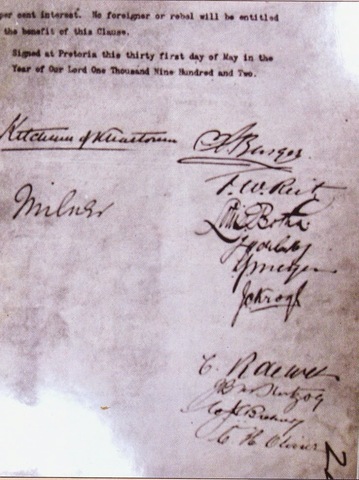 per cent interest. No foreigner or rebel will be entitled
the benefit of this Clause.
Signed at Pretoria this thirty first day of May in the
Year of Our Lord One Thousand Nine Hundred and Two.
Kitchener of Khartoum
S.W. Burger
F. W. Reitz
Milner
Louis Botha
J H de la Rey
L J Meyer
J C Krogh
C. R de Wet
J B M Hertzog
C H Olivier